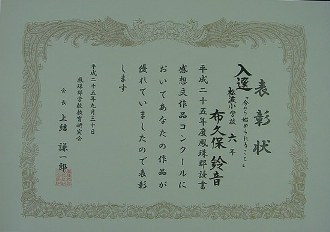 表彰状
入選 「今から始められること」
松波小学校 六年
布久保 鈴音
平成二十五年度鳳珠郡読書
感想文作品コンクールに
おいてあなたの作品が
優れていましたので表彰
します
平成二十五年九月三十日
鳳珠郡学校教育研究会
会長 上